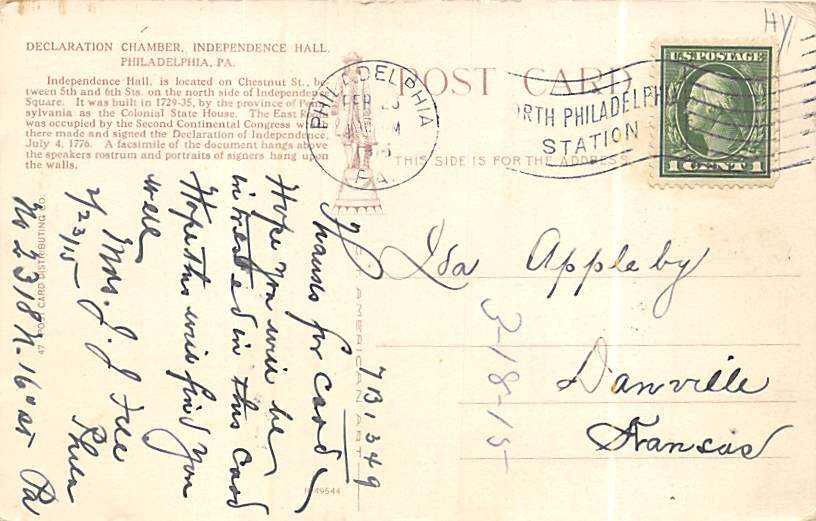 HY
DECLARATION CHAMBER, INDEPENDENCE HALL,
PHILADELPHIA, PA.
Independence Hall, is located on Chestnut St., be-
tween 5th and 6th Sts. on the north side of Independence
Square. It was built in 1729-35, by the province of Penn-
sylvania as the Colonial State House. The East Room
was occupied by the Second Continental Congress
there made and signed the Declaration of Independence,
July 4, 1776. A facsimile of the document hangs above
the speakers rostrum and portraits of signers hang upon
the walls.
POST CARD
THIS SIDE IS FOR THE ADDRESS
PHILADELPHIA
FEB 23
PA.
NORTH PHILADELPHIA
STATION
U.S. POSTAGE
1 CENT 1
Ida Appleby
Danville
Kansas
3-18-15
7B1349
hanks for card
Hope you will be
in this card
Hope this will find you
well
2/23/15
Mrs. J. J.
Phila
No 2318 N. 16" St Pa
AMERICAN ART
47 POST CARD DISTRIBUTING CO.
49544